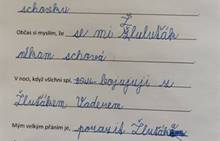 schovku
Ž
Občas si myslím, že se mi Žluťák
někam schová
V noci, když všichni spí, bojujuji s
Žluťákem Vaderem
Mým velkým přáním je, porazit Žluťák